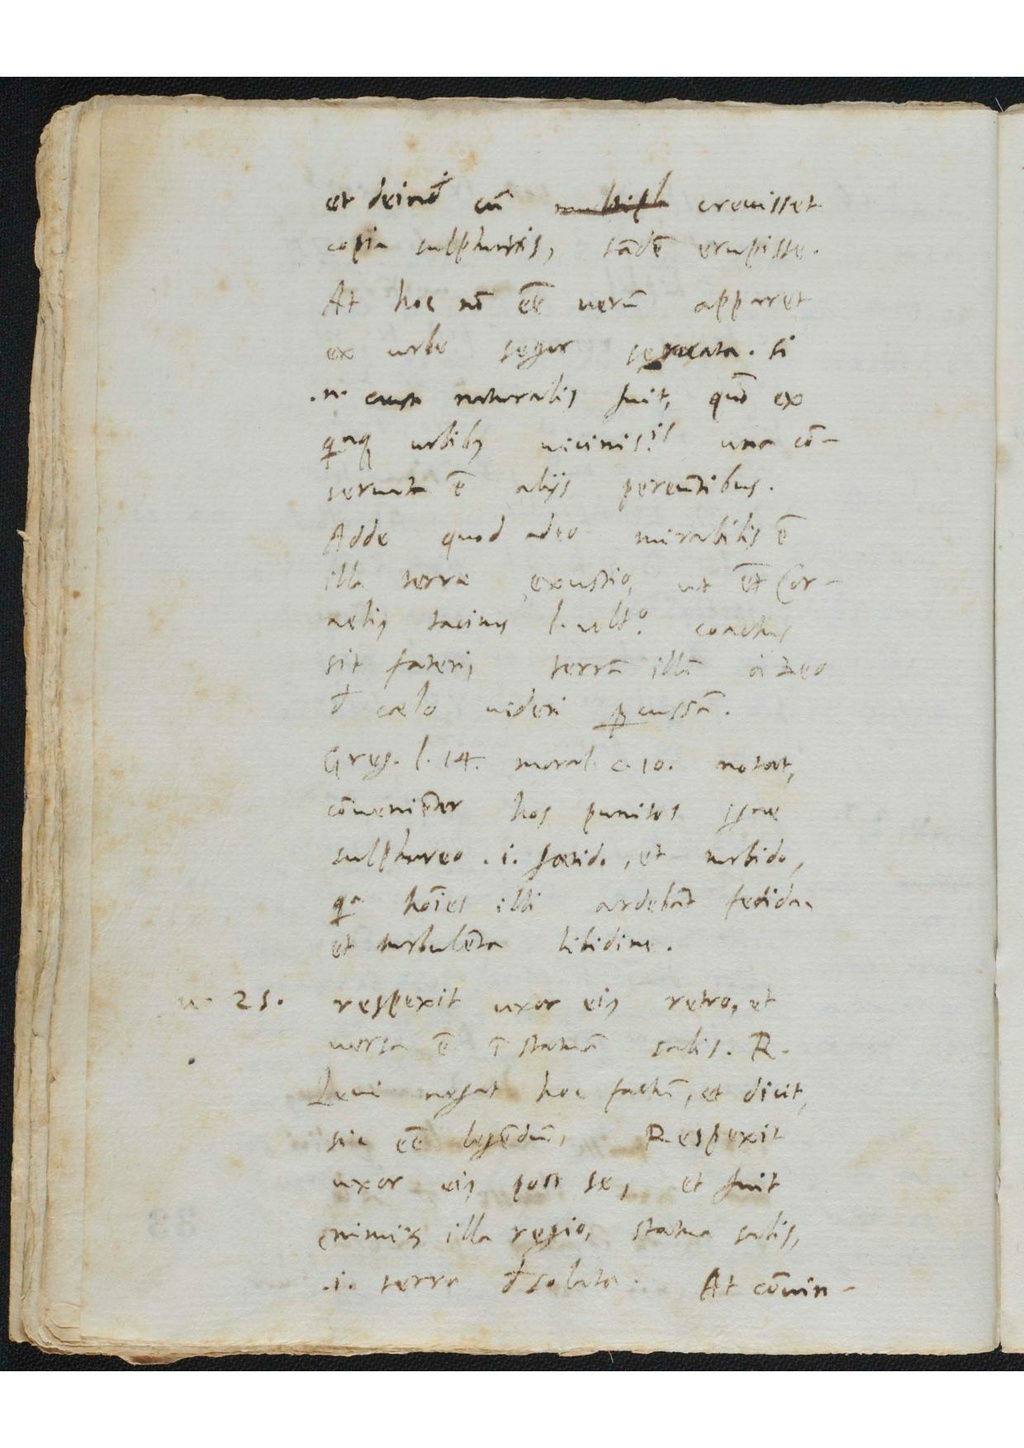 et deind̄ cū multipl crevisset
copia sulphuris, tādē erupisse.
At hoc nō eē̄ uerū apparet
ex urbe segor seruata. si
.n. causa naturalis fuit, quō ex
qnq urbibꝫ uicinis.is una cō-
seruata ē aliis pereūtibus.
Adde quod adeo mirabilis ē
illa terrae exustio, ut ēt Cor-
nelius tacitus l. ult.o coactus
sit fateri, terrā illā
đ caelo uideri ꝑcussā.
Greg. l. 14. moral. c. 10. notat,
cōueniēter hos punitos igne
sulphureo .i. foetido, et turbido,
qa hoīes illi ardebāt fetida
et turbulēta libidine.
u. 25. respexit uxor eius retro, et
uersa ē ī statuā salis. R.
Leui negat hoc factū, et dicit,
sic eē̄ legēdū, Respexit
uxor eius post se, et fuit
nimirū illa regio, statua salis,
.i. terra đsolata. At cōuin-